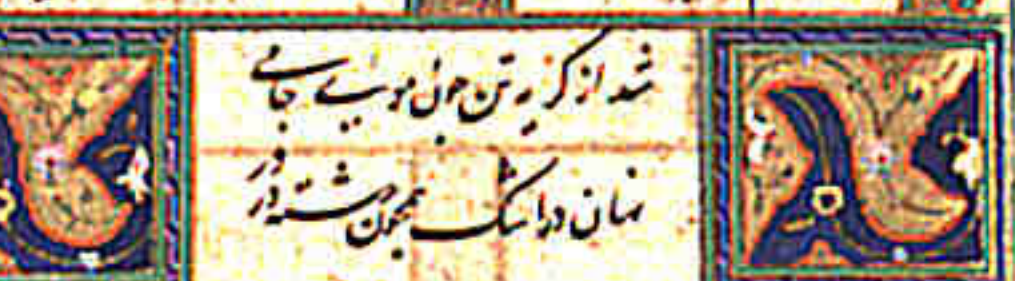 شد از گریه تن چون موی جامی
نهان در اشک همچون رشته در در